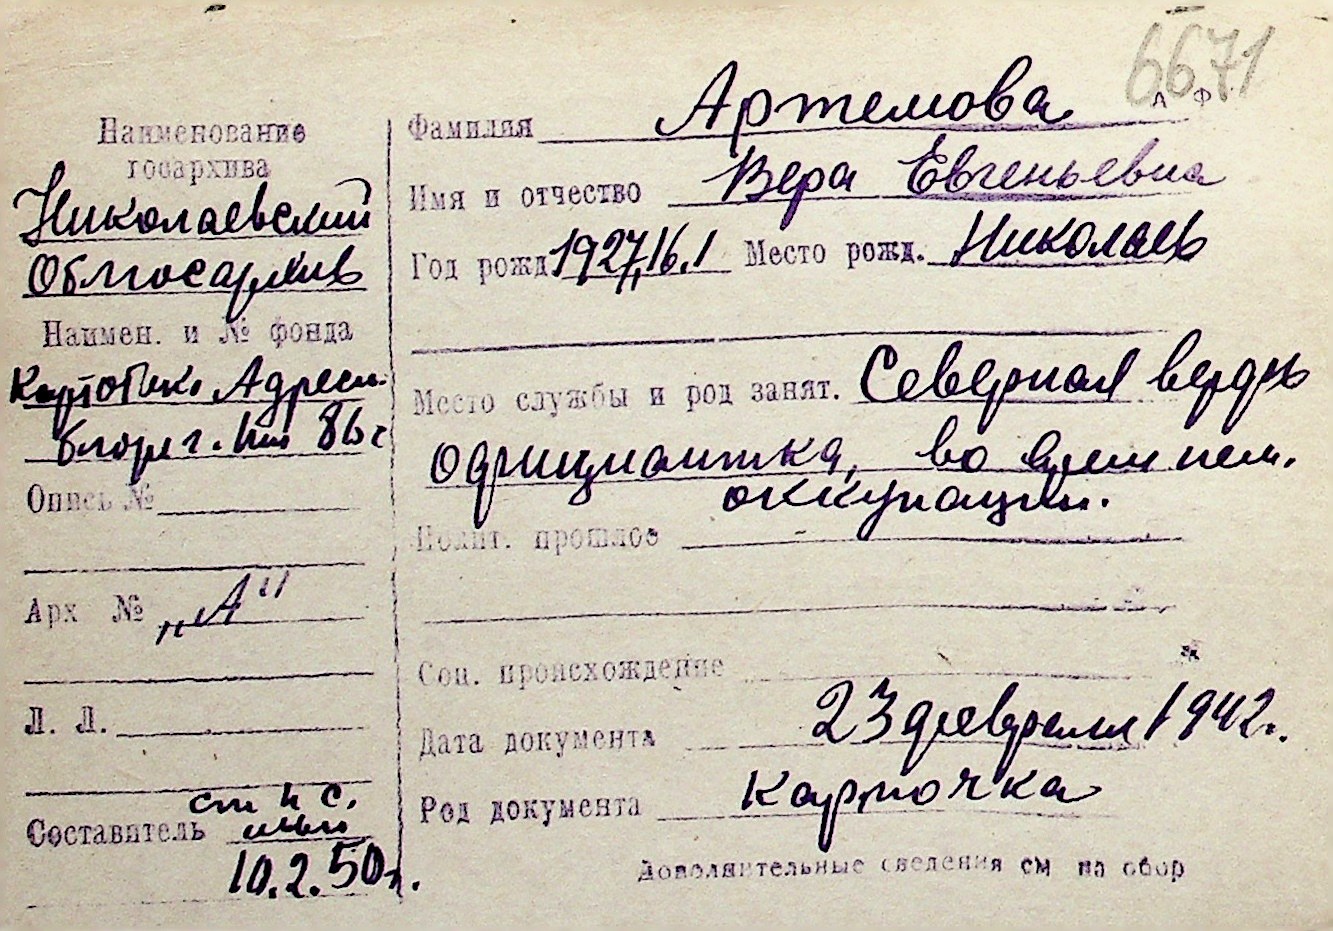 6671
А Ф.
Наименование
госархива
Николаевский
Облгосархив
Наимен. и № фонда
Картотек. Адресн.
86
Опись №
Арх № „А"
Л. Л.
ст
Составитель
10.2.50г.
Фамилия Артемова
Имя и отчество Вера Евгеньевна
Год рожд. 1927, 16.1 Место рожд. Николаев
Место службы и род занят. Северная верфь
официантка, во время нем.
оккупации.
Полит. прошлое
Соц. происхождение
Дата документа 23 февраля 1942г.
Род документа Карточка
Дополнительные сведения см на обор